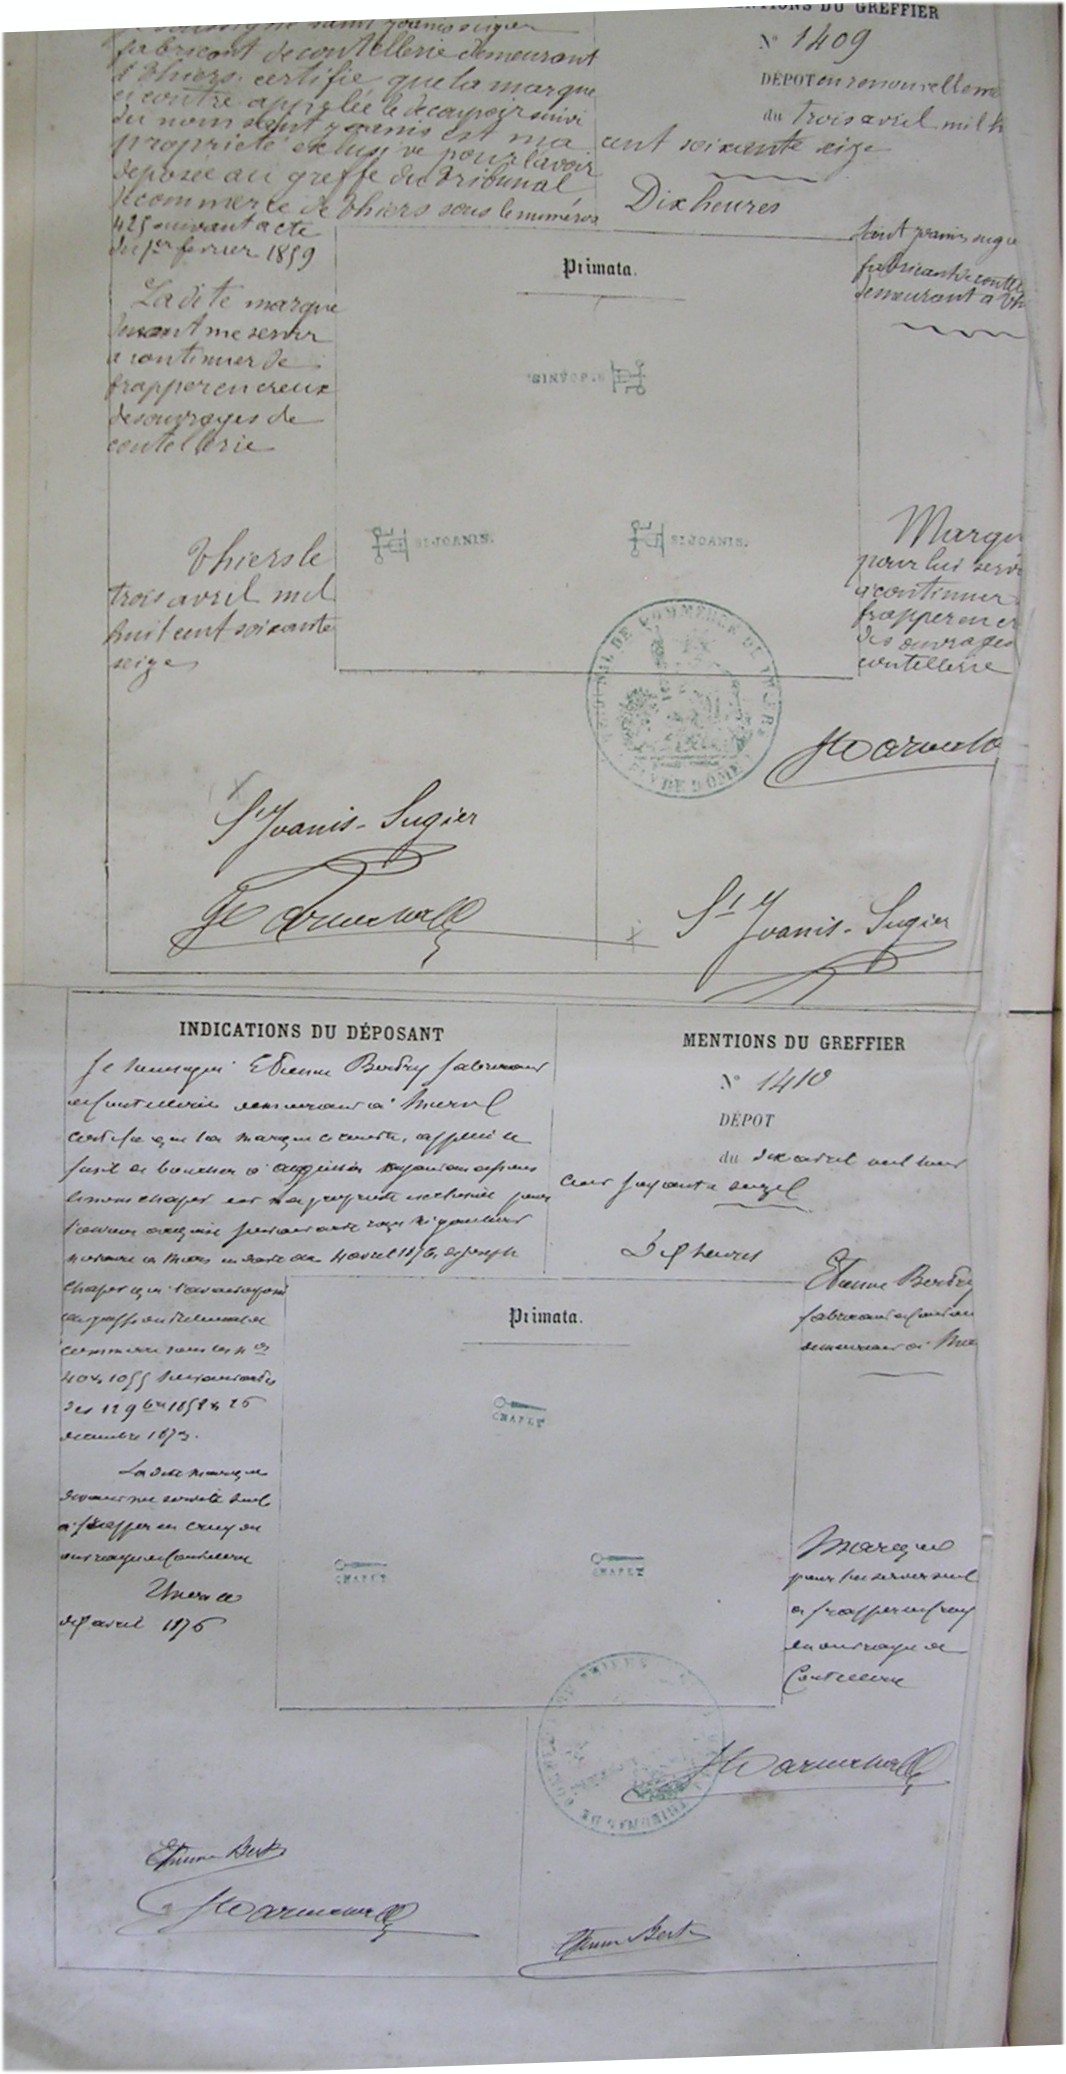 fabricant de coutellerie demeurant
à Thiers certifie que la marque
ci contre appelée le decoupoir suivi
du nom saint joanis est ma
propriété exclusive pour l'avoir
déposée au greffe du Tribunal
de commerce de Thiers sous le numéro
425 suivant acte
du 1er fevrier 1859
La dite marque
devant me servir
a continuer de
frapper en creux
des ouvrages de
coutellerie
Thiers le
trois avril mil
huit cent soixante
seize
MENTIONS DU GREFFIER
N° 1409
DÉPOT en renouvelleme
du trois avril mil h
cent soixante seize
Dix heures
Primata.
ST JOANIS.
ST JOANIS.
ST JOANIS.
saint joanis sugie
fabricant de coutel
demeurant a Th
Marque
pour lui servir
a continuer
frapper en cr
des ouvrages
coutellerie
TRIBUNAL DE COMMERCE DE THIERS
PUY DE DÔME
St Joanis-Sugier
St Joanis-Sugier
INDICATIONS DU DÉPOSANT
Je soussigné Etienne fabricant
de Coutellerie demeurant à
certifie que la marque ci contre, appelée le
fusil de boucher
le nom chapet est ma propriété exclusive pour
l'avoir acquise suivant acte reçu
notaire à Thiers en date du 4 avril 1876 de Joseph
Chapet qui l'avait déposé
au greffe du Tribunal de
commerce sous les nos
1055 suivant actes
des 12 9bre 1858 & 26
décembre 1873.
La dite marque
devant me servir seul
à frapper en creux des
ouvrages de Coutellerie
Thiers le
dix avril 1876
MENTIONS DU GREFFIER
N° 1410
DÉPOT
du dix avril mil huit
cent soixante seize
Dix heures
Primata.
CHAPET
CHAPET
CHAPET
Etienne
fabricant de Coutel
demeurant à
Marque
pour lui servir seul
à frapper en creux
des ouvrages de
Coutellerie
Etienne Bert
Etienne Bert